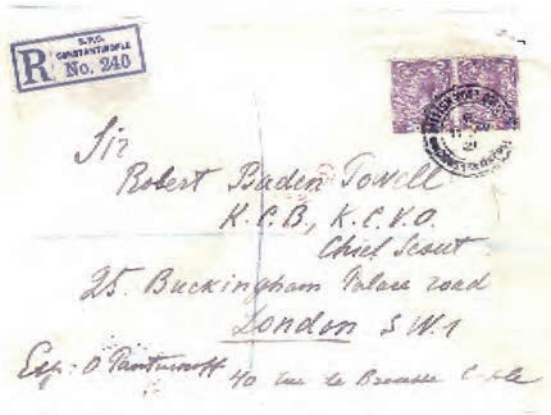 B.P.O.
CONSTANTINOPLE
R No. 240
Sir
Robert Baden Powell
K.C.B., K.C.V.O.
Chief Scout
25. Buckingham Palace road
London S W.1
Exp: O
40 rue de Brousse C-ple